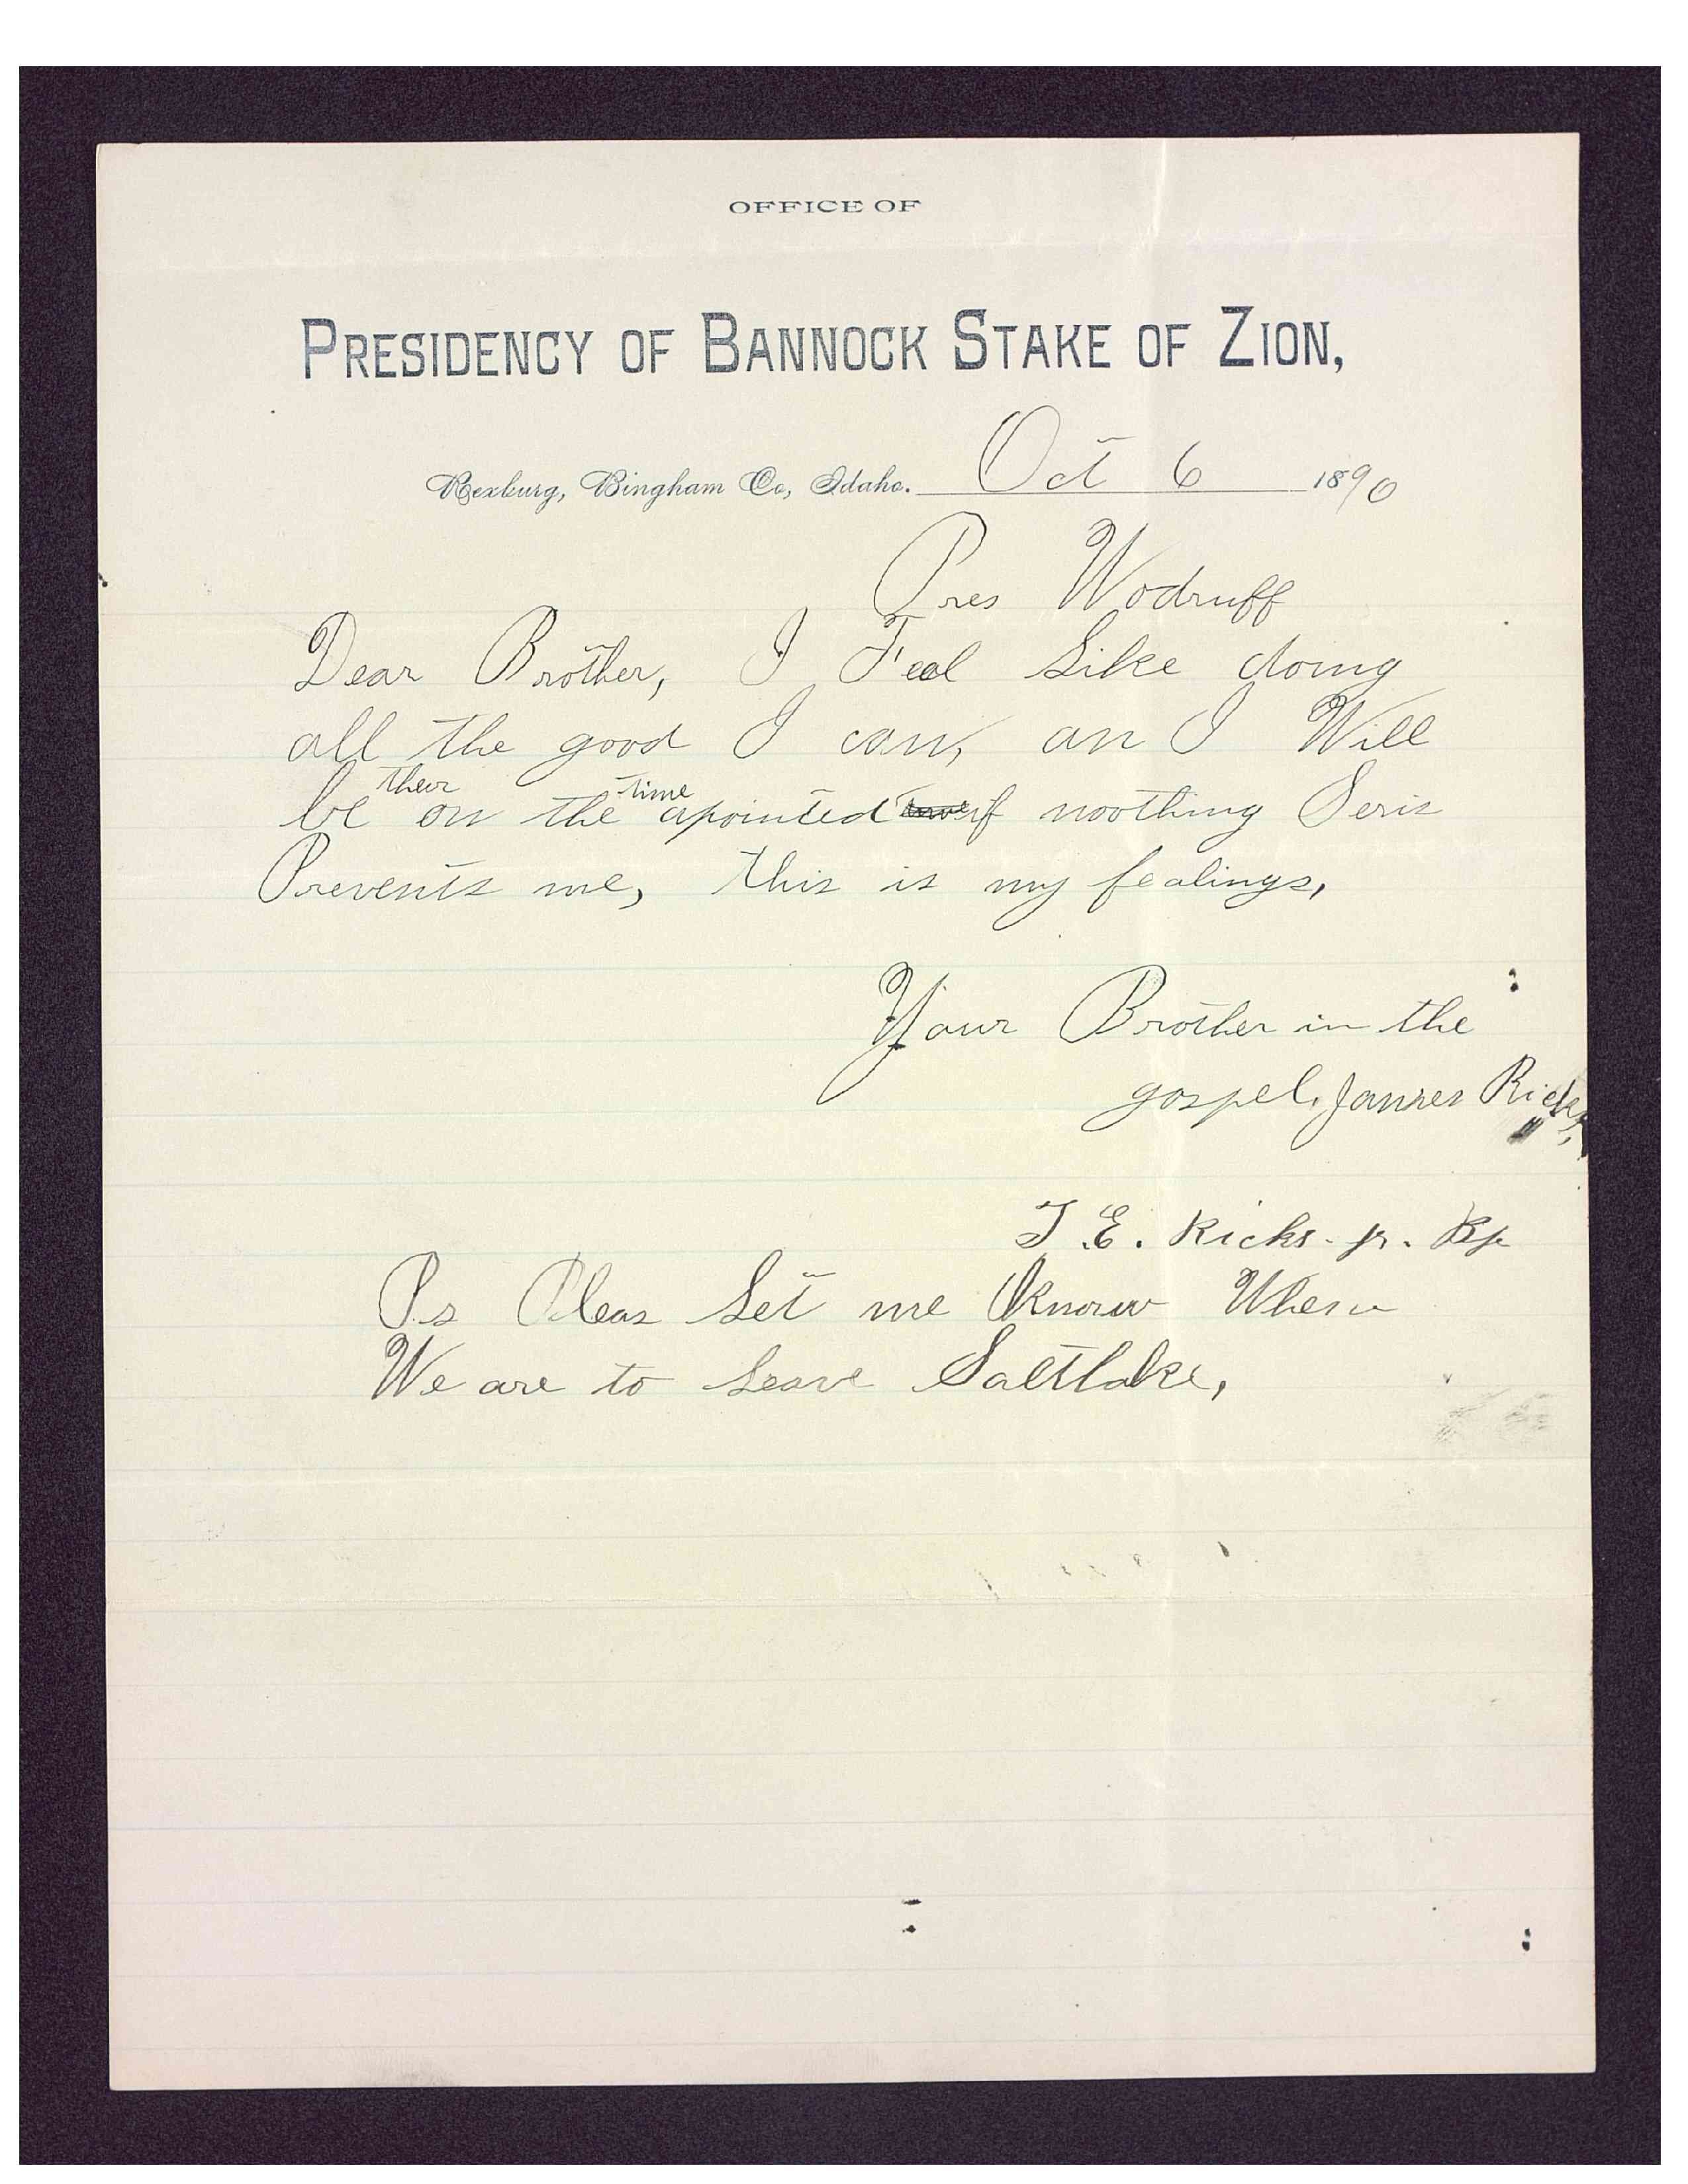 OFFICE OF
PRESIDENCY OF BANNOCK STAKE OF ZION,
Rexburg, Bingham Co, Idaho. Oct 6 1890
Pres Wodruff
Dear Brother, I Feal Like doing
all the good I can, an I Will
be their on the time apointed if noothing Seris
Prevents me, this is my fealings,
Your Brother in the
gospel, James Ricks,
T. E. Ricks. jr. Bp
Ps Pleas Let me Know When
We are to Leave Saltlake,